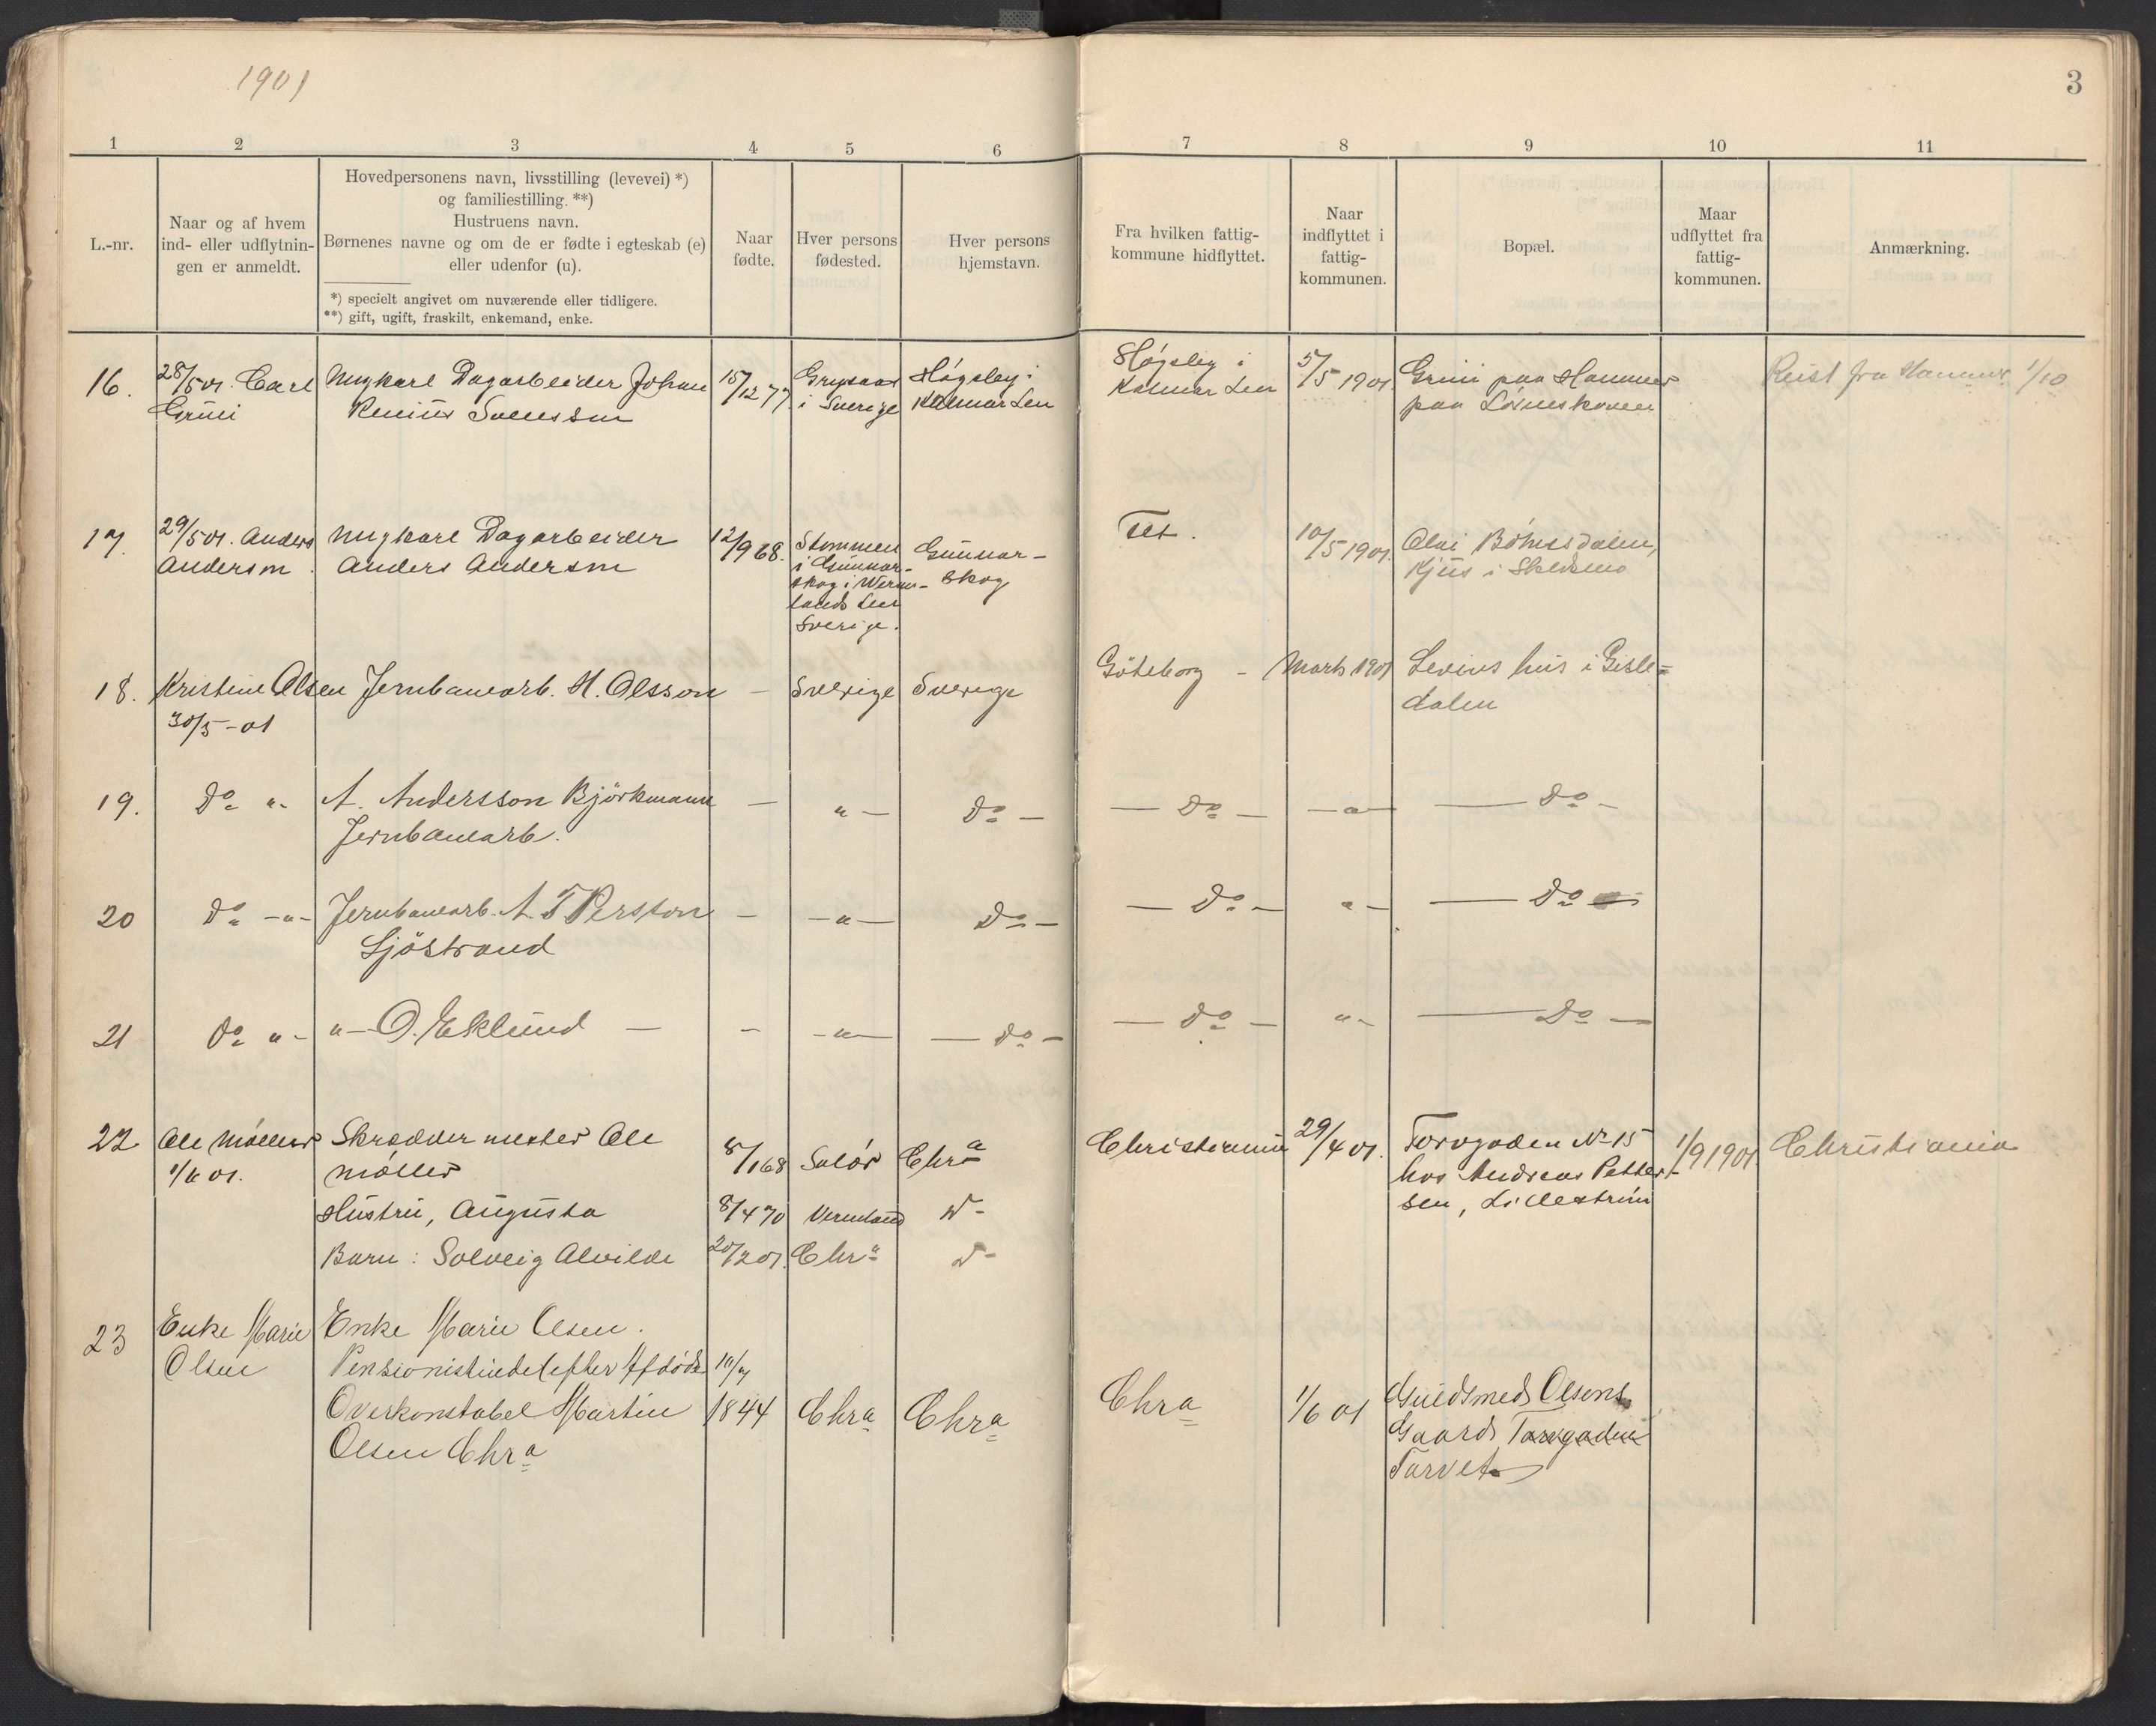 1901
3
1 2 3 4 5 6 7 8 9 10 11
L.-nr.
Naar og af hvem
ind- eller udflytnin-
gen er anmeldt.
Hovedpersonens navn, livsstilling (levevei) *)
og familiestilling. **)
Hustruens navn.
Børnenes navne og om de er fødte i egteskab (e)
eller udenfor (u).
*) specielt angivet om nuværende eller tidligere.
**) gift, ugift, fraskilt, enkemand, enke.
Naar
fødte.
Hver persons
fødested.
Hver persons
hjemstavn.
Fra hvilken fattig-
kommune hidflyttet.
Naar
indflyttet i
fattig-
kommunen.
Bopæl.
Maar
udflyttet fra
fattig-
kommunen.
Anmærkning.
16.
28/5 01. Carl
Grini
Ungkarl Dagarbeider Johan
Svensson
15/12 77
i Sverige
Høgsby i
Kalmar Len
Høgsby i
Kalmar Len
5/5 1901
Grini paa Hammer
paa
Reist fra Hammer 1/10
17.
29/5 01. Anders
Anderson.
Ungkarl Dagarbeider
Anders Anderson
12/9 68.
Stommen
i Gunnar-
skog i Werm-
lands Len
Sverige.
Gunnar-
skog
Fet.
10/5 1901.
Olai Böhlersdalen,
Kjus i Skedsmo
18.
Kristine Olsen
30/5-01
Jernbanearb. H. Olsson
-
Sverige
Sverige
Göteborg -
Marts 1901
Levins hus i Gisle=
dalen
19.
Do "-
A. Andersson Björkmann
Jernbanearb.
—
"—
Do —
— Do —
—"—
—— Do -
20
Do -"-
Jernbanearb. A. T. Persson
Sjöstrand
-
-"—
Do —
— Do —
"-
—— Do —
21
Do "-
"- O. Eklund —
-
-"—
— Do —
— Do —
"-
—— Do —
22
Ole Møller
1/6 01.
Skræddermester Ole
Møller
8/1 68
Solør
Chra
Christiania
29/4 01.
Torvgaden No 15
hos Andreas Petter-
sen, Lillestrøm
1/9 1901
Christiania
Hustru, Augusta
8/4 70
Vermland
Do-
Barn: Solveig Alvilde
20/2 01.
Chra
Do-
23
Enke Marie
Olsen
Enke Marie Olsen.
Pensionistinde (efter Afdøde
Overkonstabel Martin
Olsen Chra
10/7
1844
Chra
Chra
Chra
1/6 01
Guldsmed Olsens
Gaard, Torvgaden
Torvet